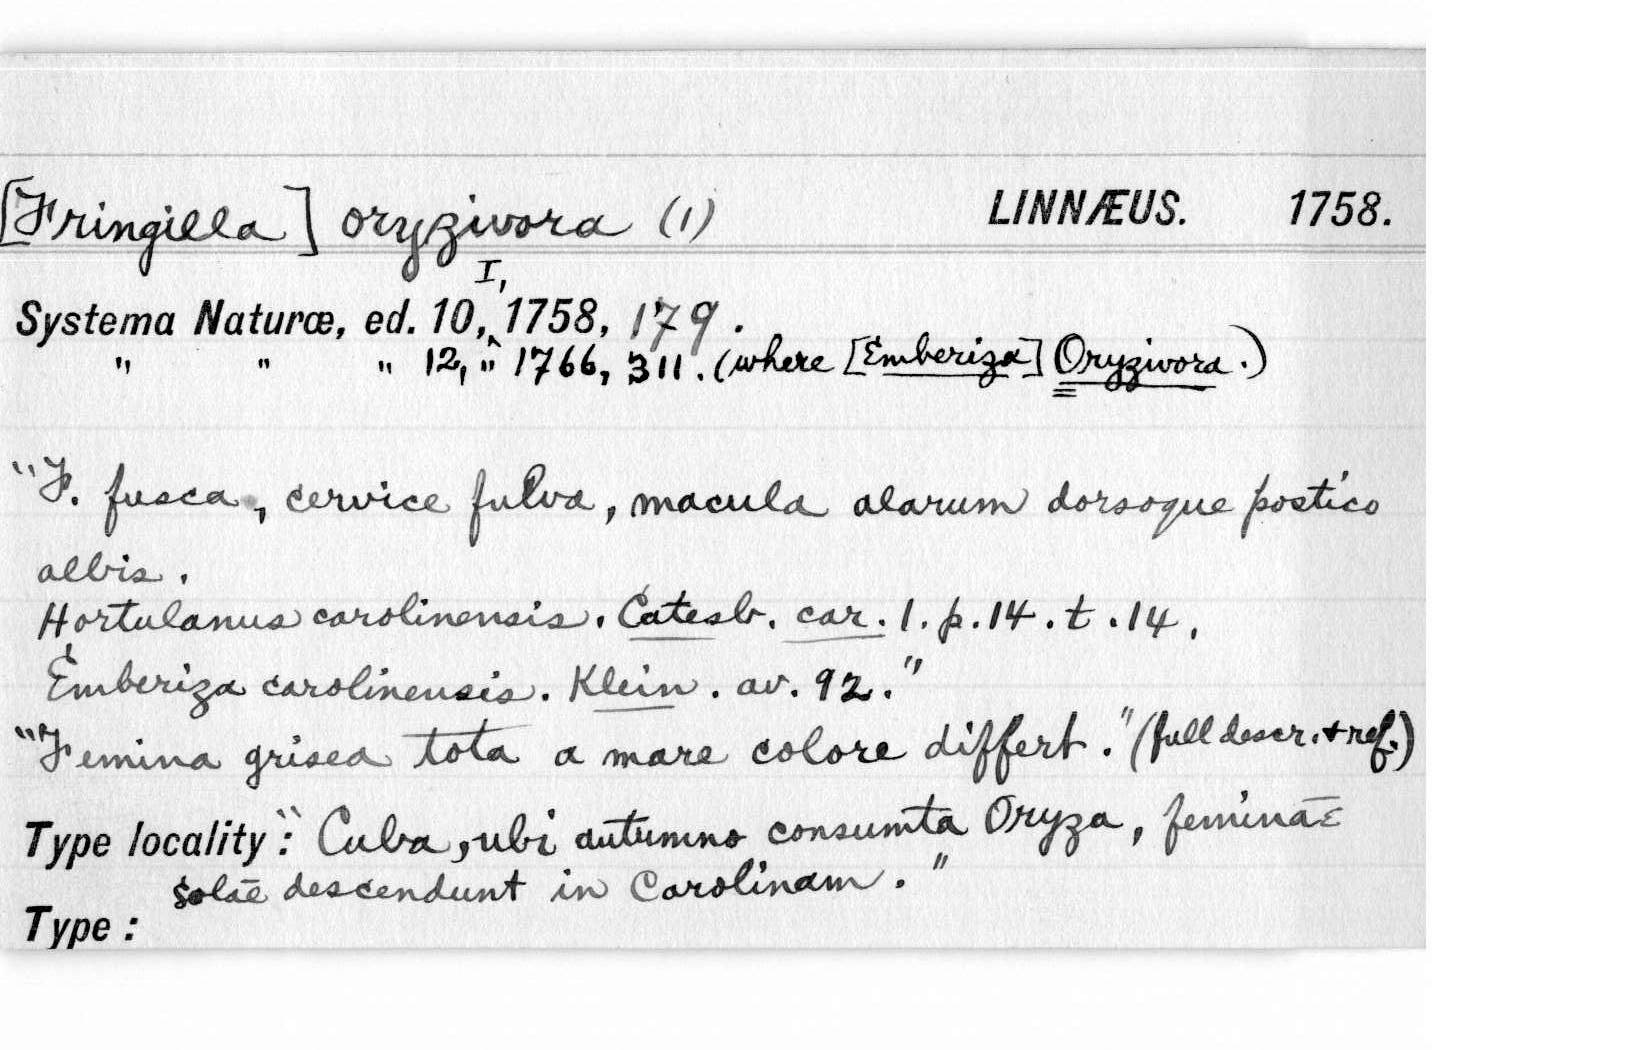 [Fringilla] oryzivora (1) LINNÆUS. 1758.
Systema Naturæ, ed. 10, I, 1758, 179.
" " " 12, " 1766, 311. (where [Emberiza] Oryzivora.)
"F. fusca, cervice fulva, macula alarum dorsoque postico
albis.
Hortulanus carolinensis. Catesb. car. 1. p. 14. t. 14.
Emberiza carolinensis. Klein. av. 92."
"Femina grisea tota a mare colore differt." (full descr. + ref.)
Type locality: "Cuba, ubi autumno consumta Oryza, feminæ
solæ descendunt in Carolinam."
Type: